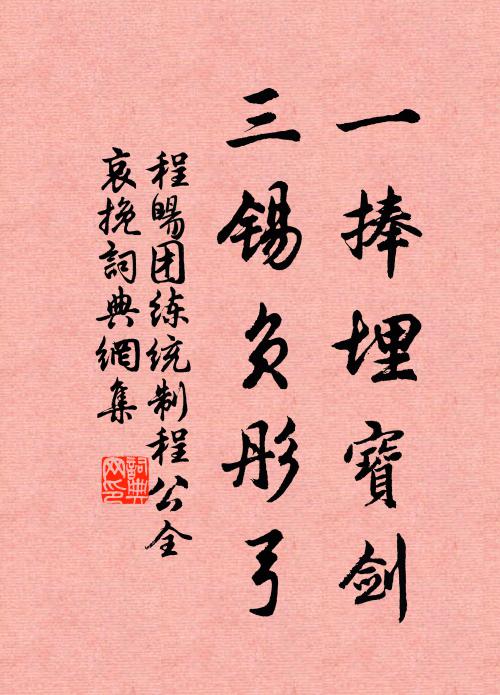 一捧埋寶劍
三錫負彤弓
程鳴团练统制程公全
哀挽詞典網集
詞典网印